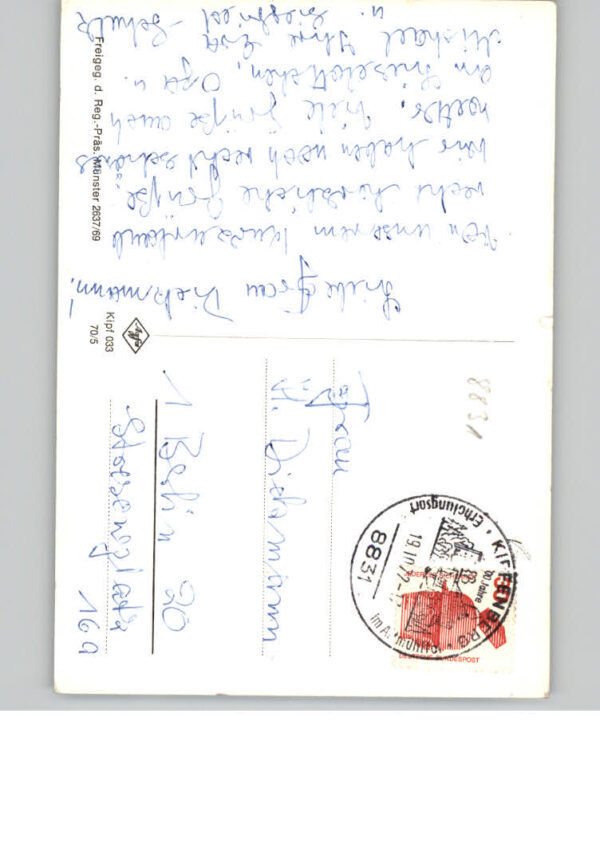 Liebe Frau Diekmann!
Von unserem Kurzurlaub
recht herzliche Grüße.
Wir haben noch recht schönes
Wetter. Viele Grüße auch
an Lieselottchen, Opa u.
Michael Ihre Eva
u. Siegfried Schulz
Freigeg. d. Reg.-Präs. Münster 2637/69
Agfa
Kipf 033
70/5
Frau
H. Diekmann
1 Berlin 20
169
8831
KIPFENBERG
Erholungsort
8831
19.10.72
Jahre
im Altmühltal
50
DEUTSCHE BUNDESPOST